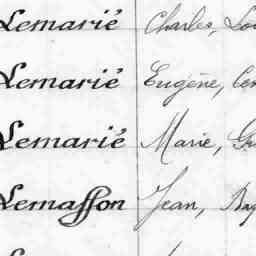 Lemarié Charles,
Lemarié Eugène,
Lemarié Marie,
Lemasson Jean,